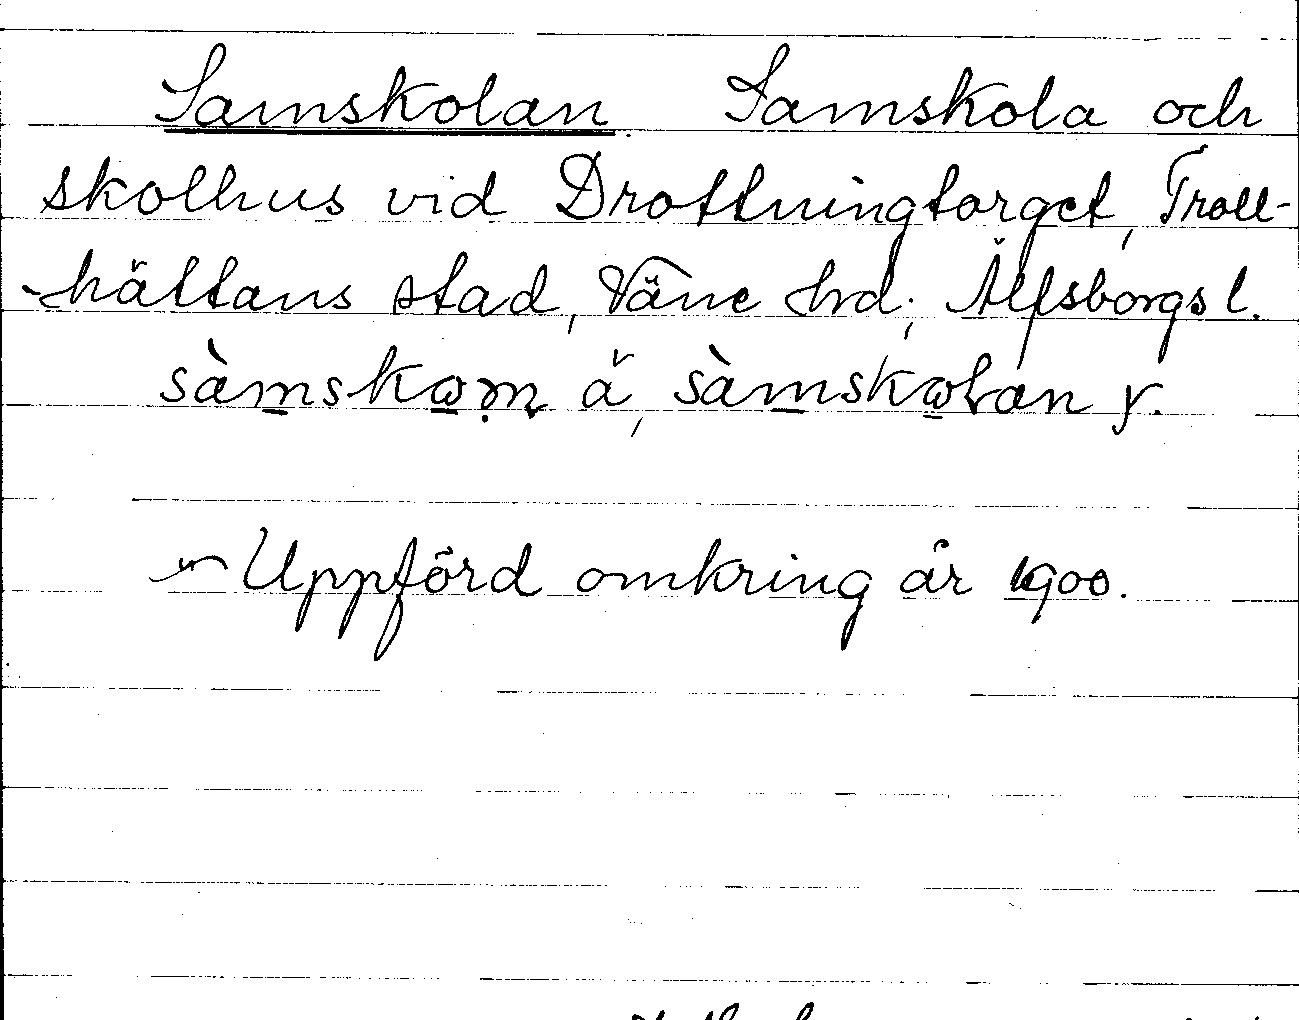 Samskolan. Samskola och
skolhus vid Drottningtorget, Troll-
-hättans stad, Väne hrd; Älfsborgs l.
sàmskωm ä, sàmskωlan y.
Uppförd omkring år 1900.